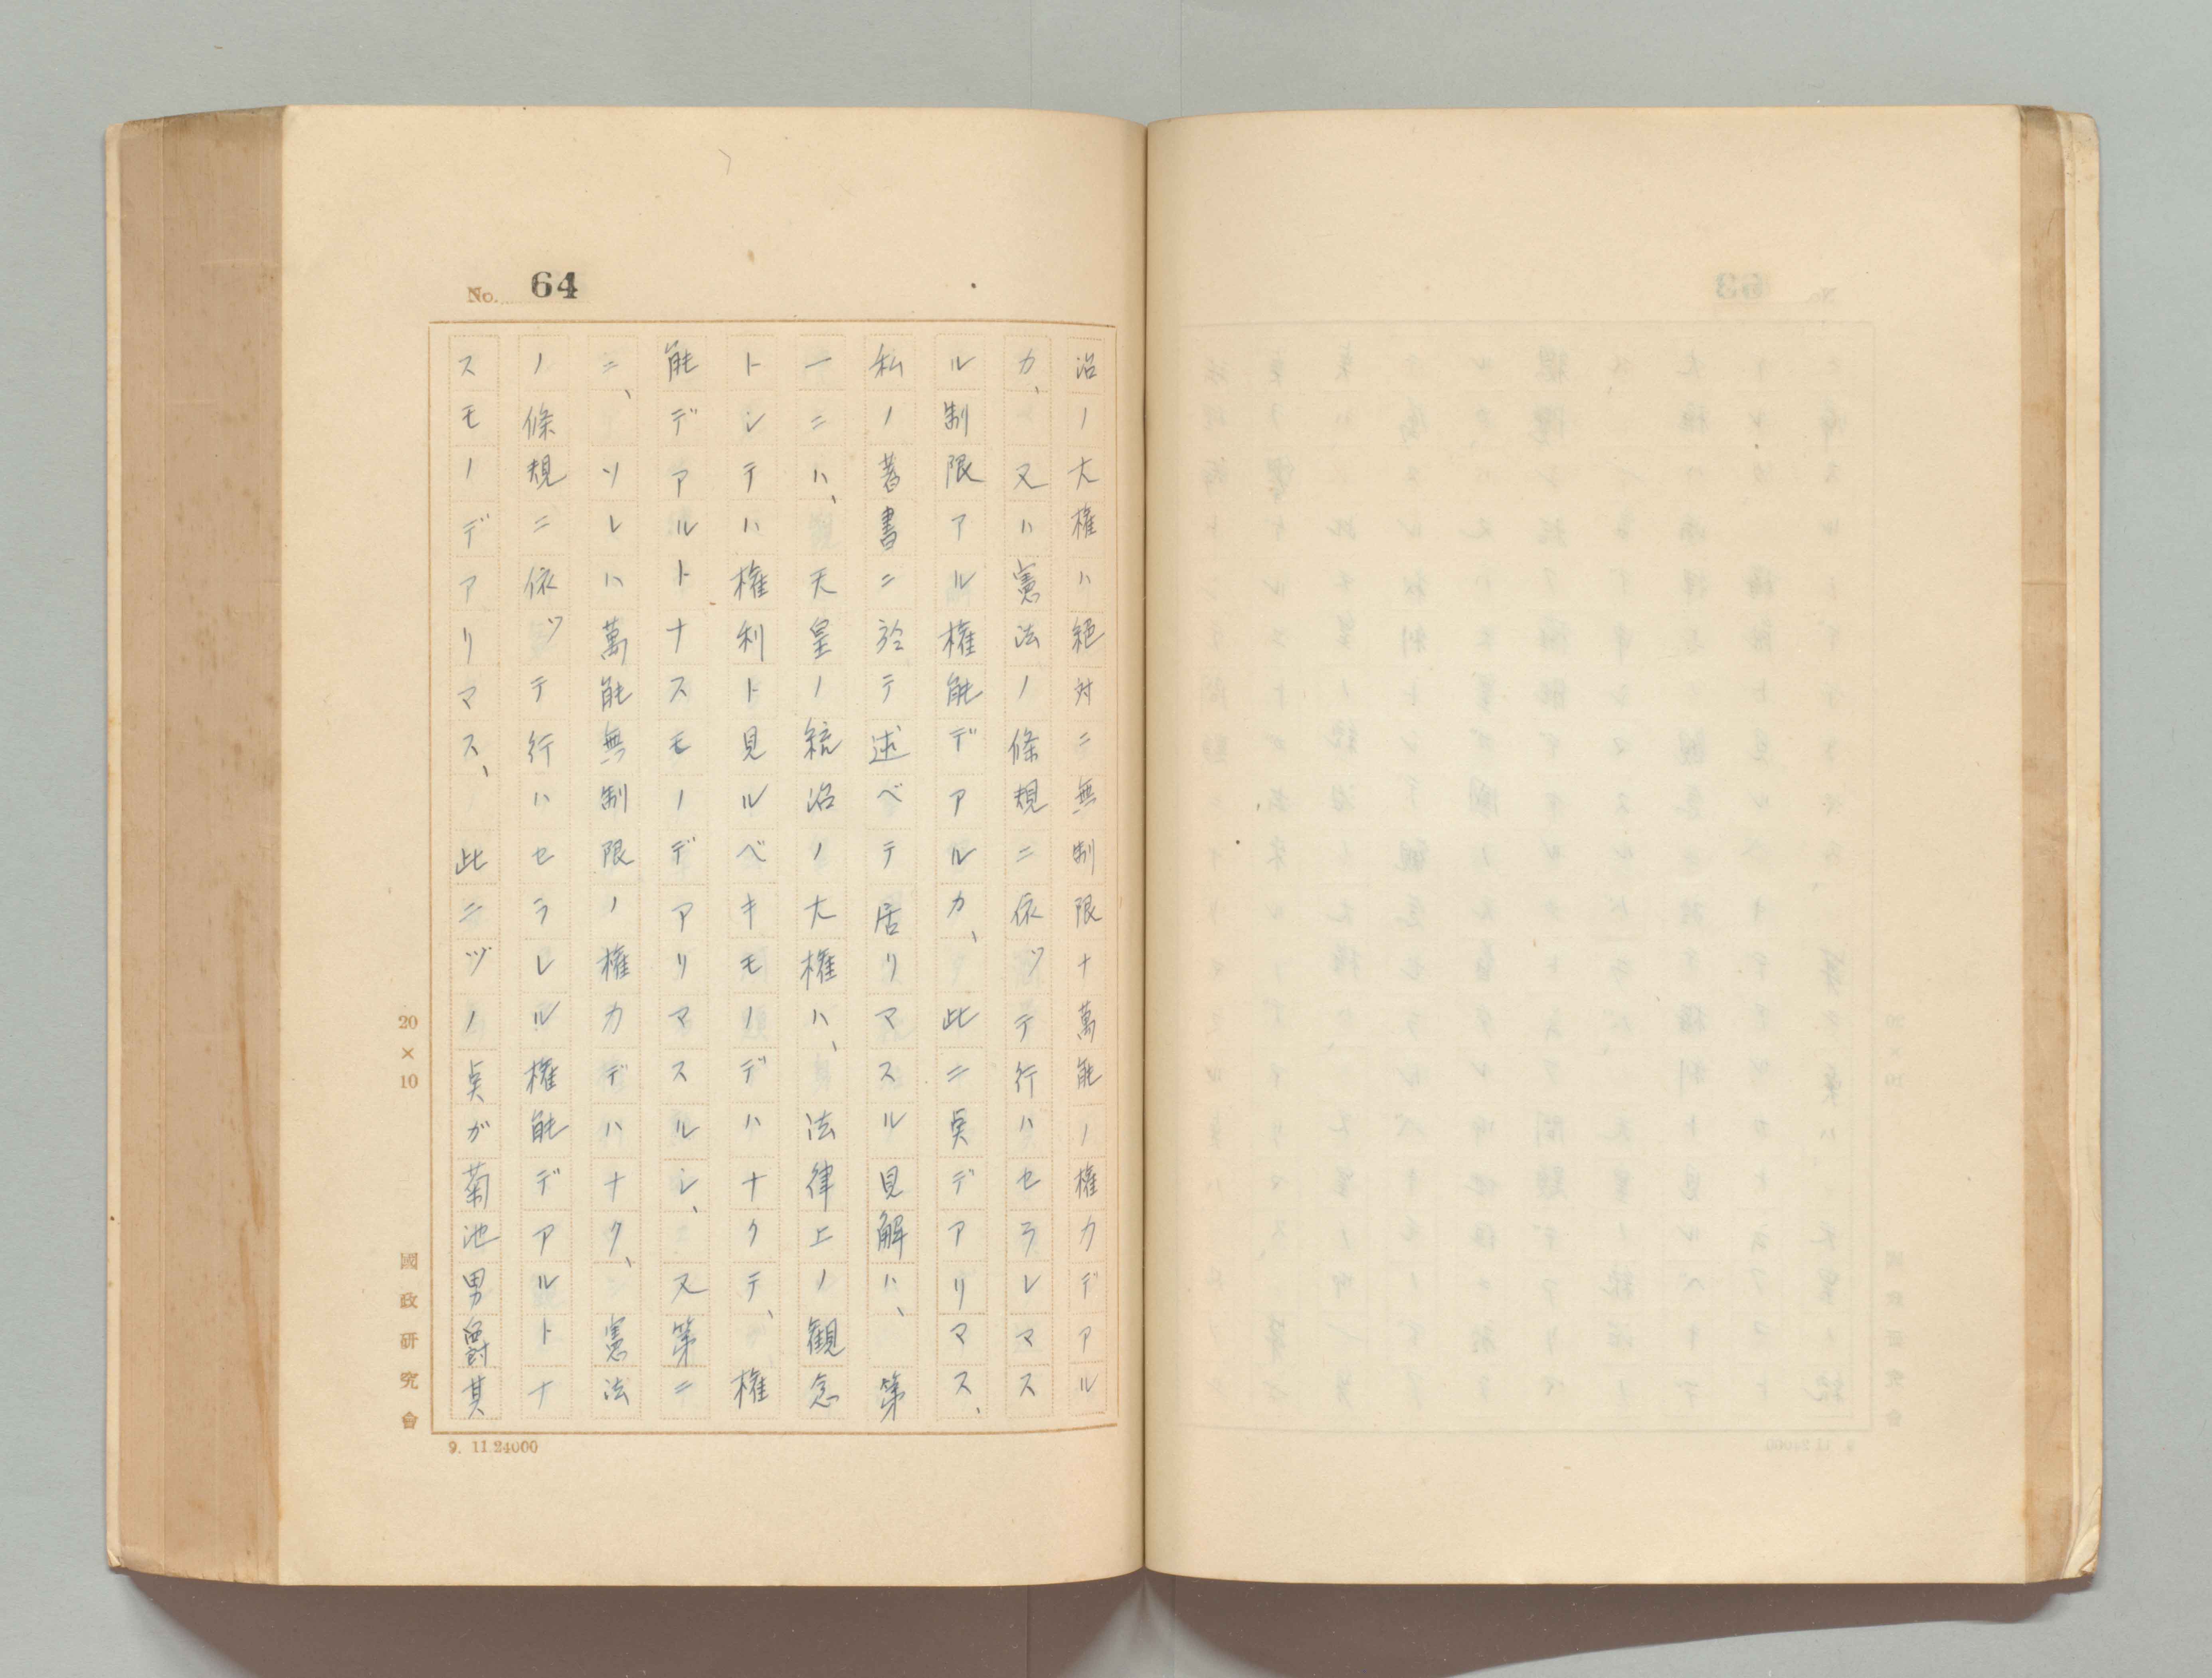 No. 64
治ノ大権ハ絶対ニ無制限ナ萬能ノ権力デアル
カ、又ハ憲法ノ條規ニ依ッテ行ハセラレマス
ル制限アル権能デアルカ、此ニ点デアリマス、
私ノ著書ニ於テ述ベテ居リマスル見解ハ、第
一ニハ、天皇ノ統治ノ大権ハ、法律上ノ観念
トシテハ権利ト見ルベキモノデハナクテ、権
能デアルトナスモノデアリマスルシ、又第ニ
ニ、ソレハ萬能無制限ノ権力デハナク、憲法
ノ條規ニ依ッテ行ハセラレル権能デアルトナ
スモノデアリマス、此ニヅノ点ガ菊池男爵其
20×10
國政研究會
9. 11.24000